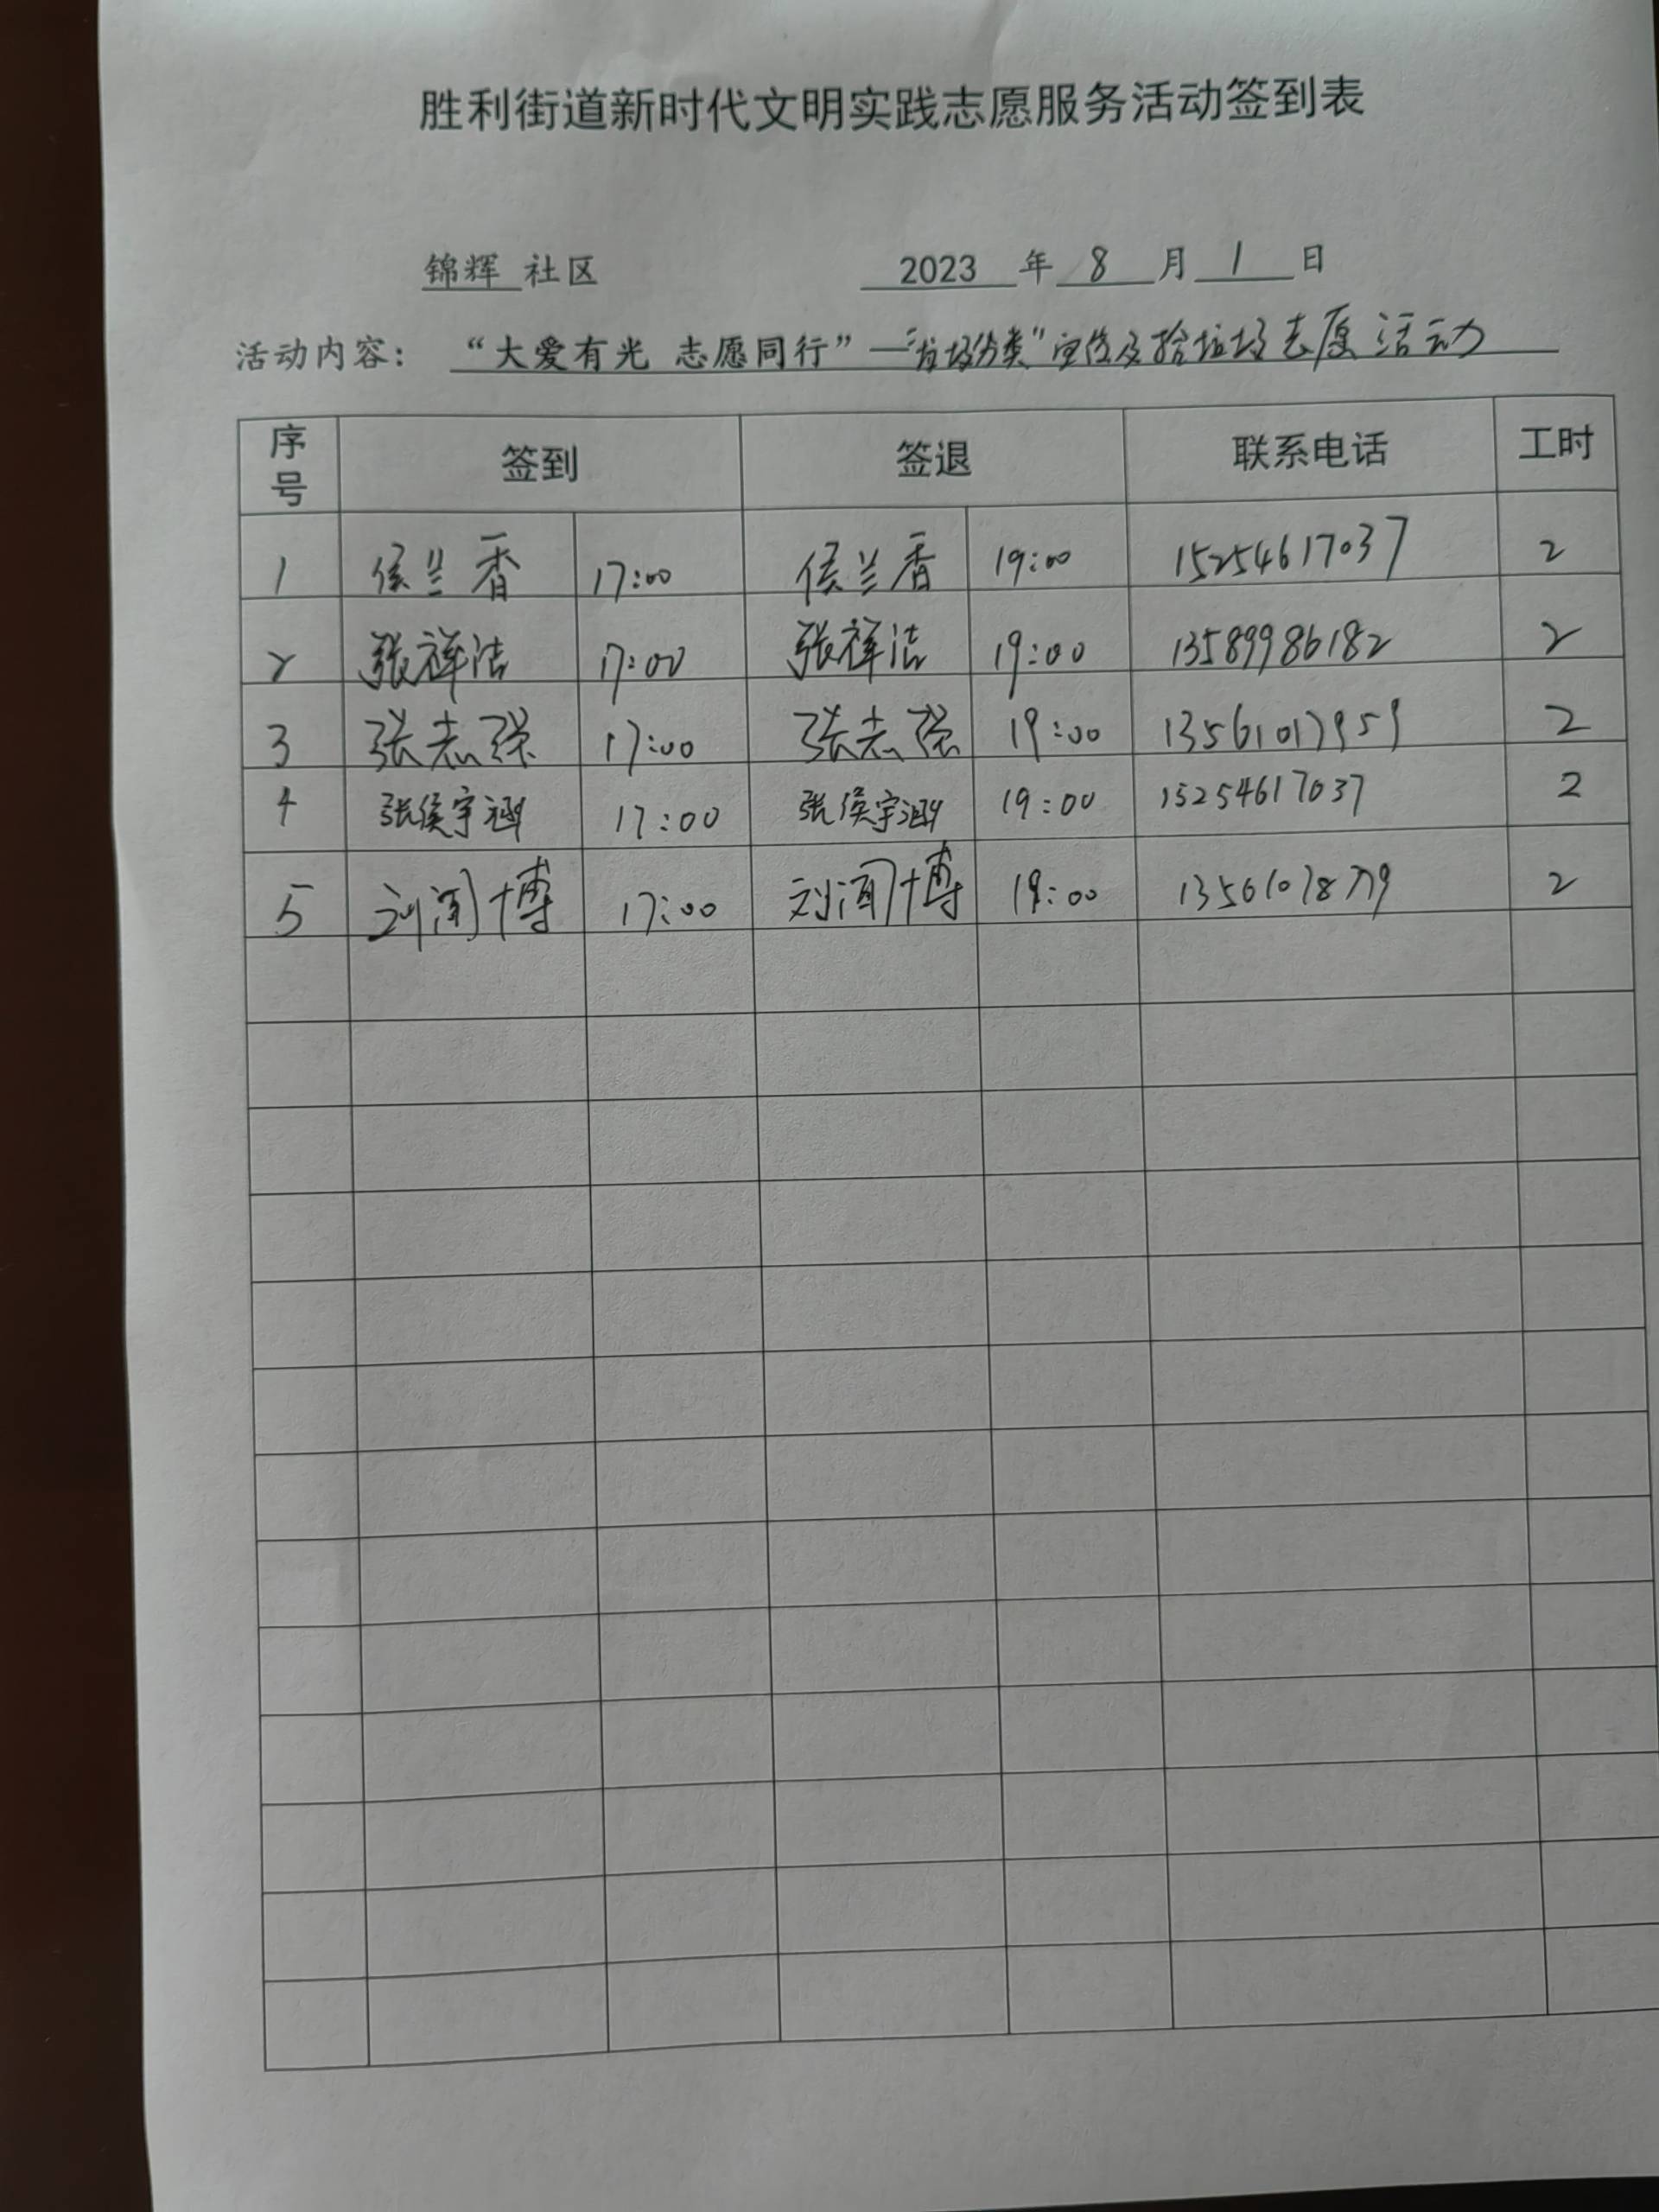 胜利街道新时代文明实践志愿服务活动签到表
锦辉 社区 2023 年 8 月 1 日
活动内容： “大爱有光 志愿同行”—“垃圾分类”宣传及捡垃圾志愿活动
序号 签到 签退 联系电话 工时
1 侯兰香 17:00 侯兰香 19:00 15254617037 2
2 张祥洁 17:00 张祥洁 19:00 13589986182 2
3 张志强 17:00 张志强 19:00 2
4 张侯宇涵 17:00 张侯宇涵 19:00 15254617037 2
5 刘闻博 17:00 刘闻博 19:00 2